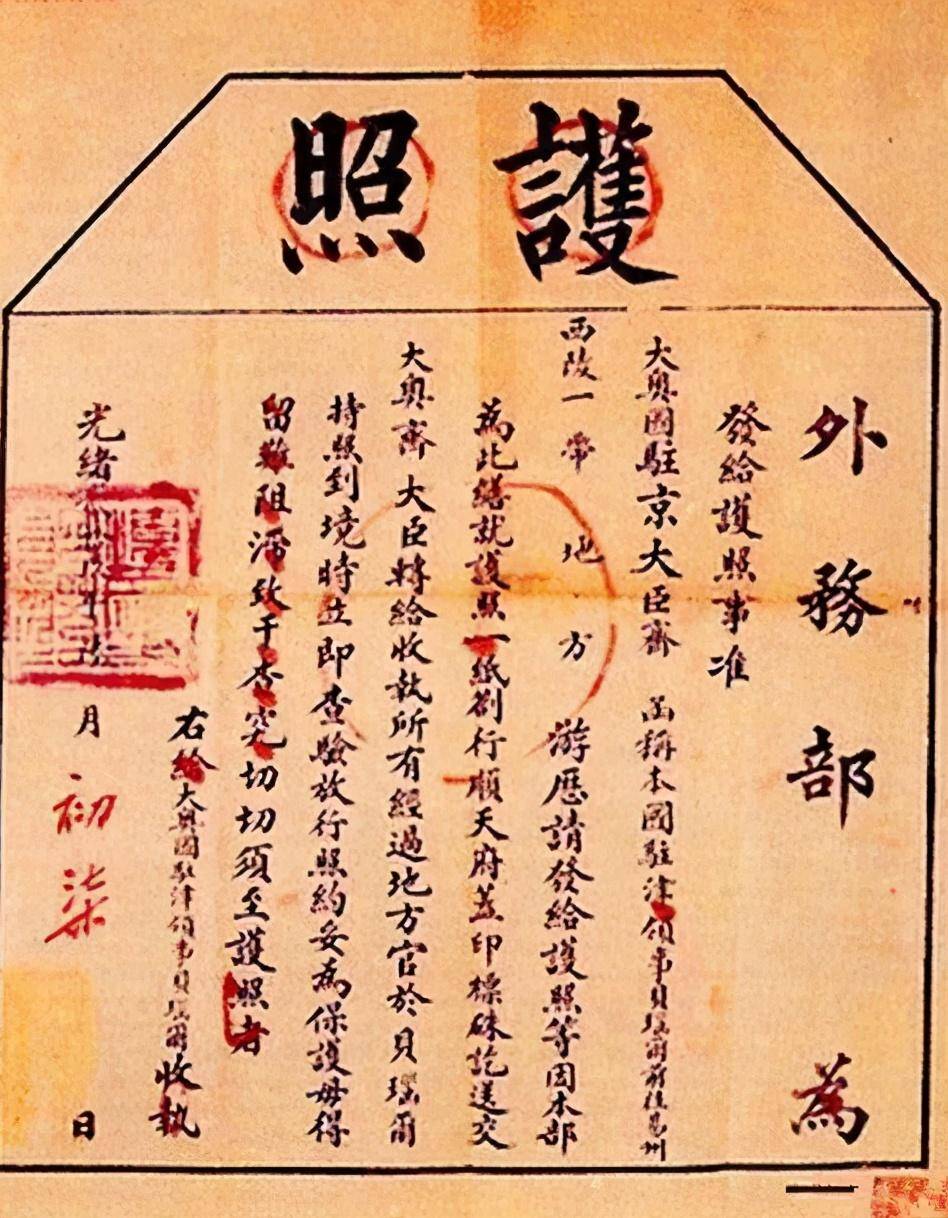 護照
外務部為
發給護照事准
大奧國駐京大臣齊 函稱本國駐津領事貝瑤爾前往易州
西陵一帶地方游歷請發給護照等因本部
為此繕就護照一紙劄行順天府蓋印標硃訖送交
大奧齊大臣轉給收執所有經過地方官於貝瑤爾
持照到境時立即查驗放行照約妥為保護毋得
留難阻滯致干查究切切須至護照者
右給大奧國駐津領事貝瑤爾收執
光緒 月初柒日